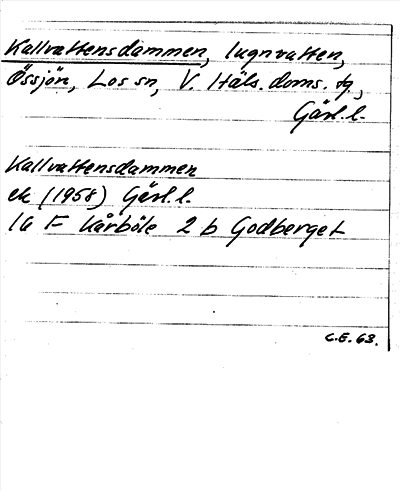 Kallvattensdammen, lugnvatten,
Össjön, Los sn, V. Häls. doms. tg,
Gävl. l.
Kallvattensdammen
ek (1958) Gävl. l.
16 F Kårböle 2 b Godberget
C.E. 63.